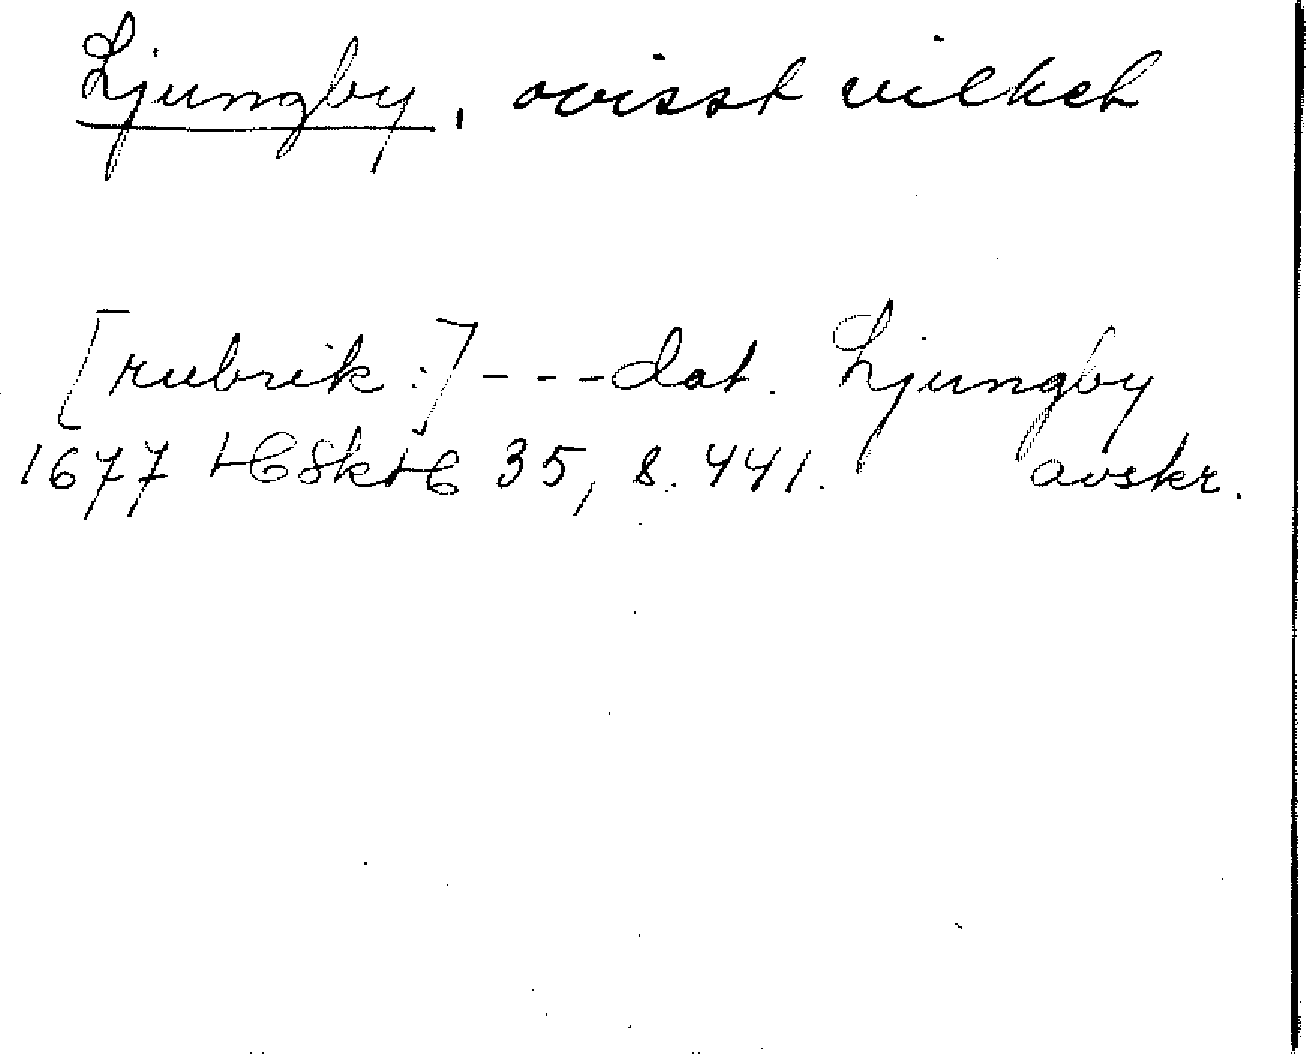 Ljungby, ovisst vilket
[rubrik:]---dat. Ljungby
1677 HSkH 35, s. 441. avskr.